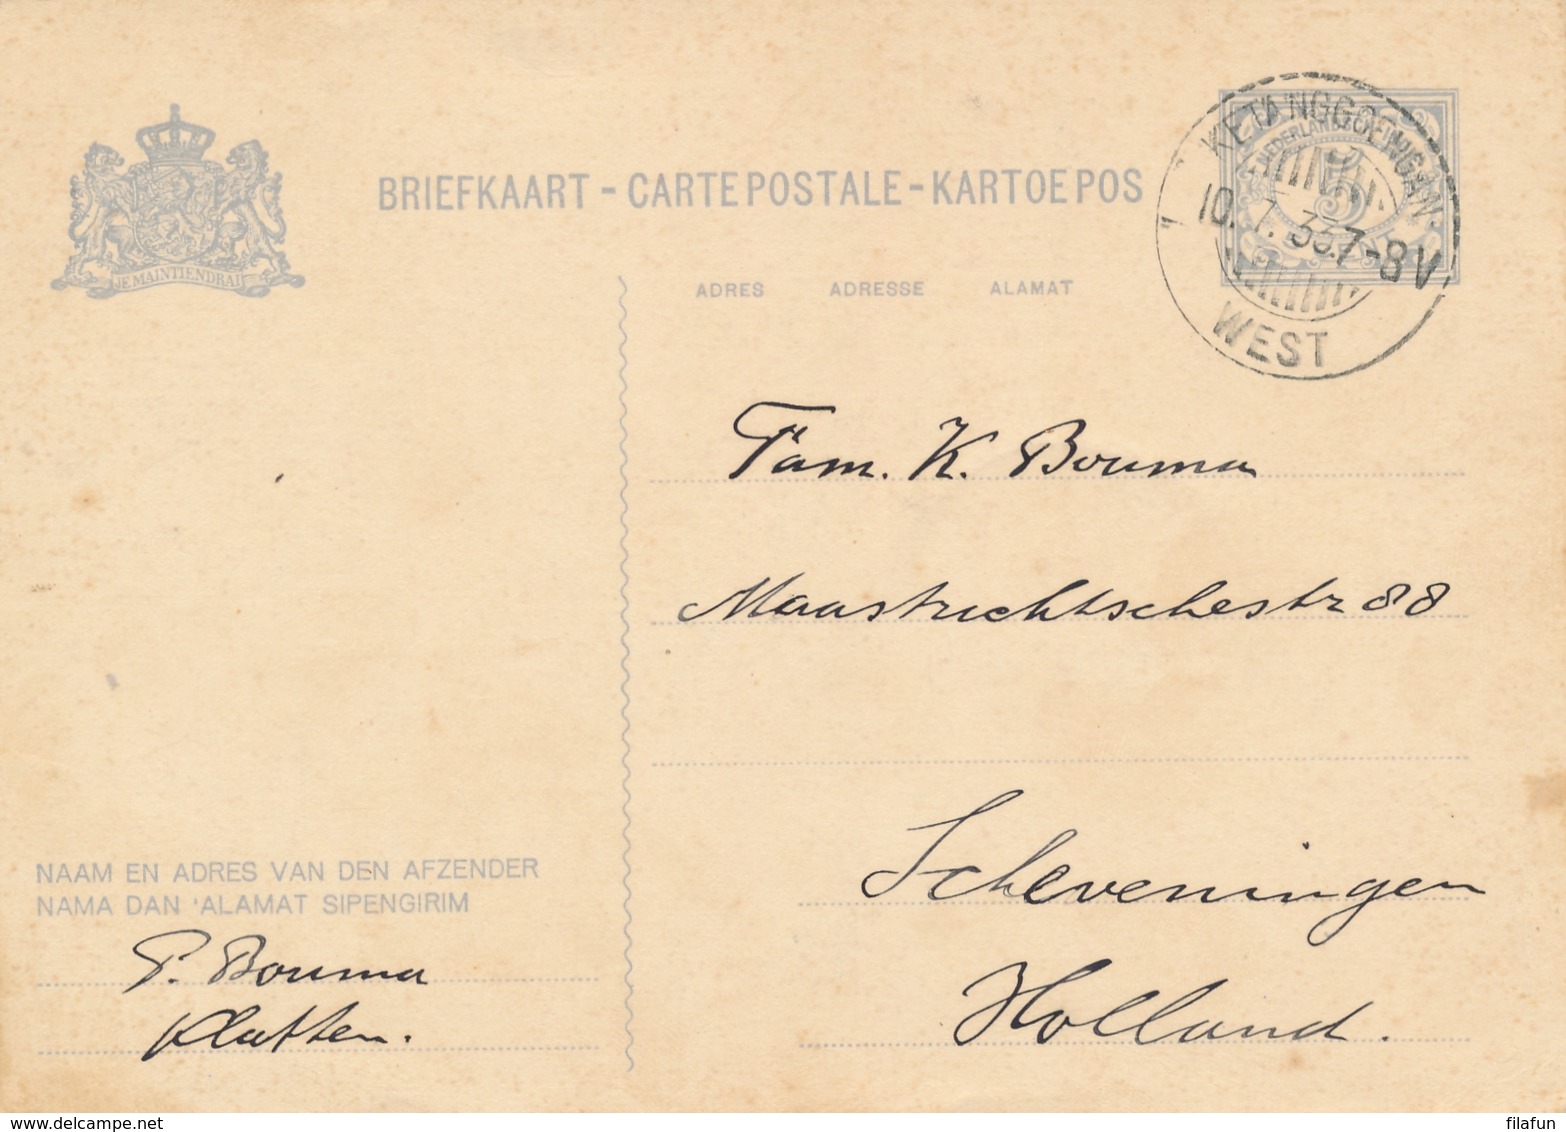 BRIEFKAART - CARTE POSTALE - KARTOE POS
JE MAINTIENDRAI
ADRES ADRESSE ALAMAT
KETANGGOENGAN.
NEDERLANDSCH
10. 7. 33. 7-8 V
WEST
Fam. K. Bouma
Maastrichtschestr 88
Scheveningen
Holland.
NAAM EN ADRES VAN DEN AFZENDER
NAMA DAN 'ALAMAT SIPENGIRIM
P. Bouma
Klatten.
delcampe.net
filafun